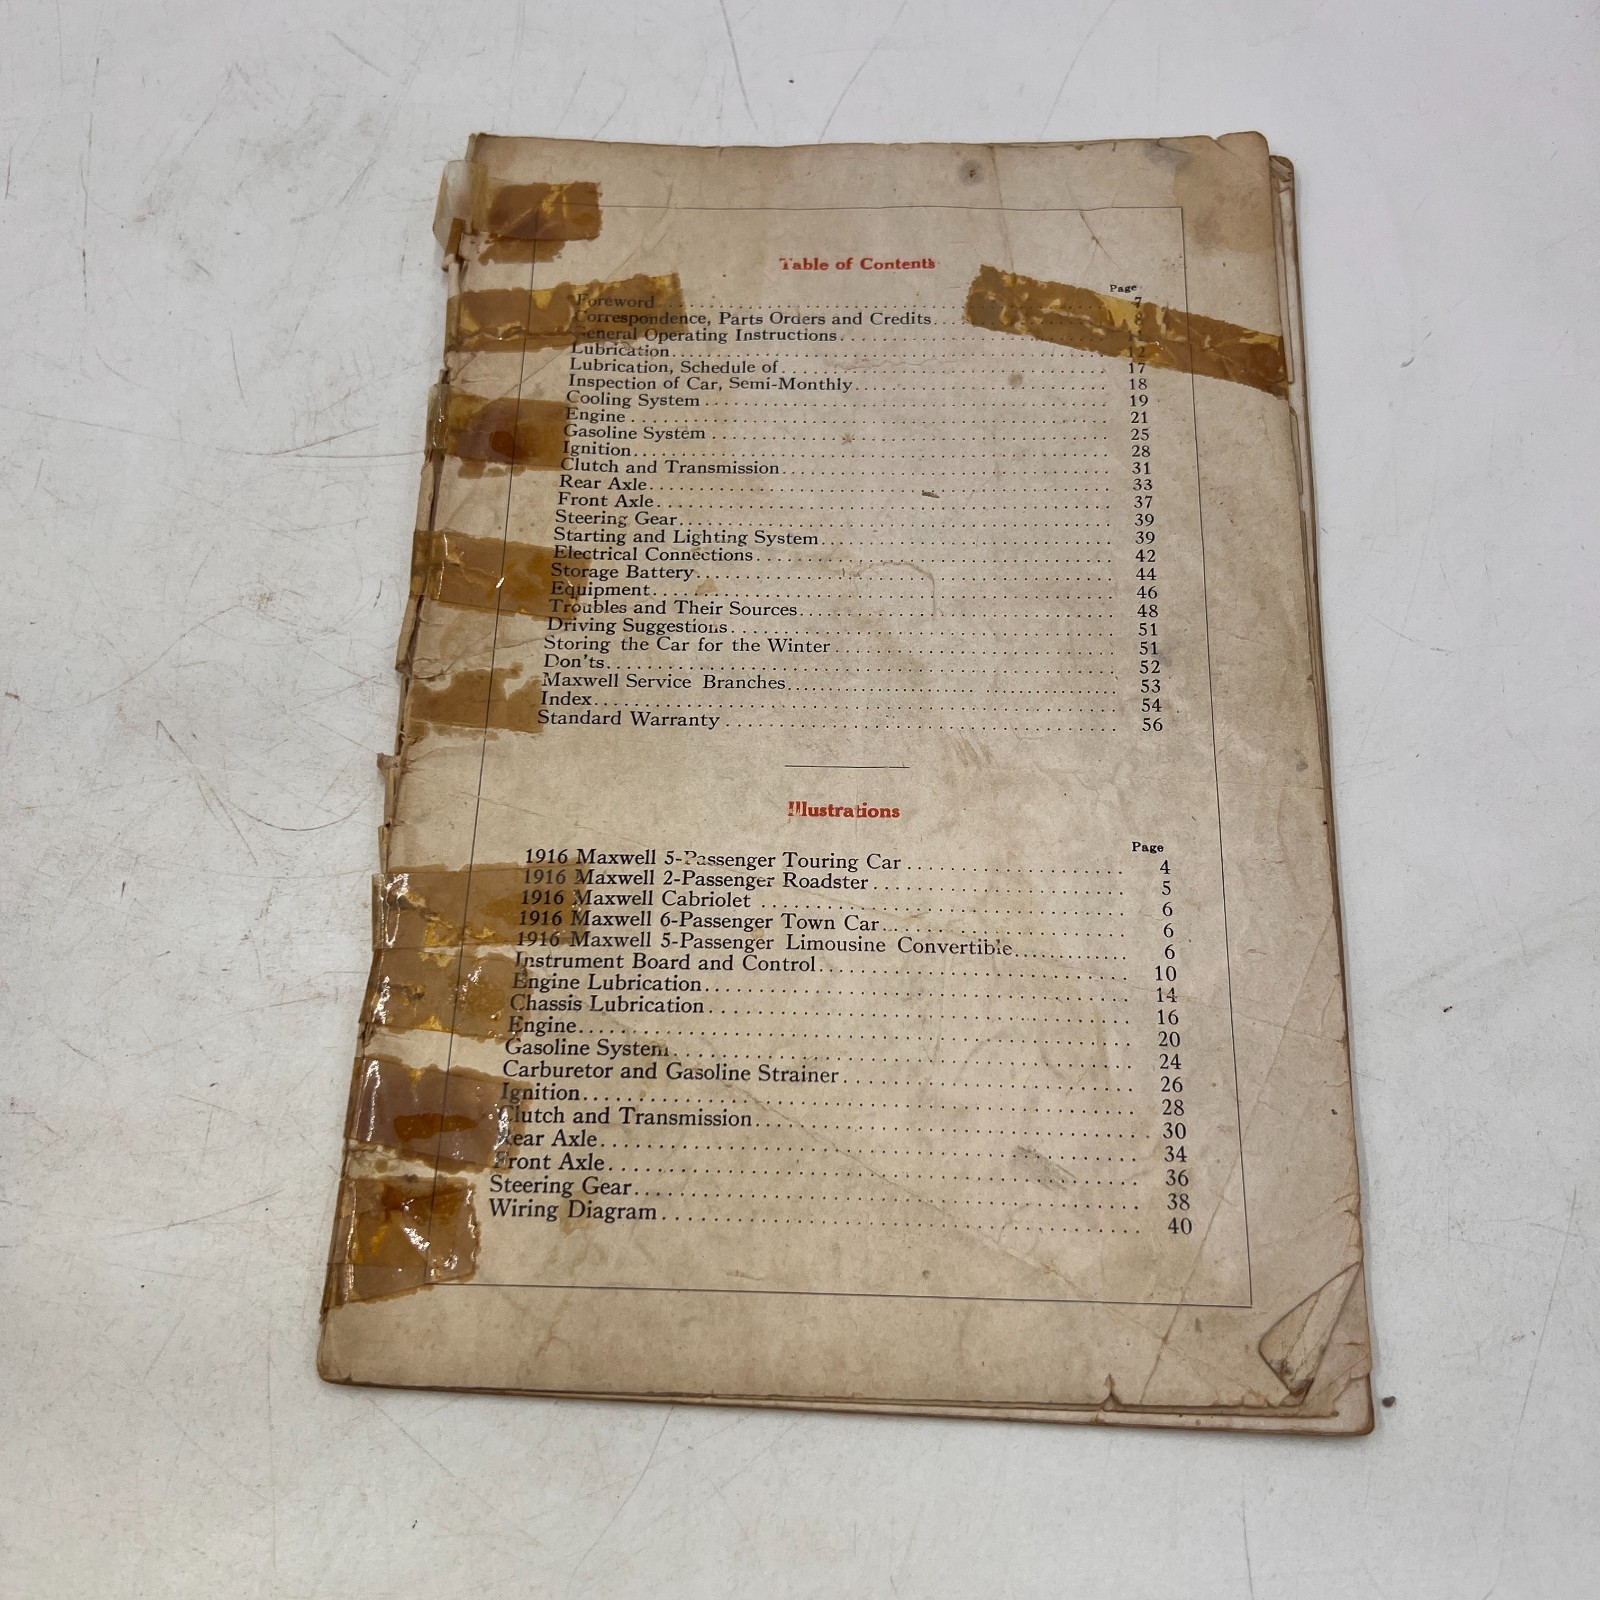 Table of Contents
Page
Foreword........ 7
Correspondence, Parts Orders and Credits........ 8
General Operating Instructions........ 11
Lubrication........ 12
Lubrication, Schedule of........ 17
Inspection of Car, Semi-Monthly........ 18
Cooling System........ 19
Engine........ 21
Gasoline System........ 25
Ignition........ 28
Clutch and Transmission........ 31
Rear Axle........ 33
Front Axle........ 37
Steering Gear........ 39
Starting and Lighting System........ 39
Electrical Connections........ 42
Storage Battery........ 44
Equipment........ 46
Troubles and Their Sources........ 48
Driving Suggestions........ 51
Storing the Car for the Winter........ 51
Don'ts........ 52
Maxwell Service Branches........ 53
Index........ 54
Standard Warranty........ 56
Illustrations
Page
1916 Maxwell 5-Passenger Touring Car........ 4
1916 Maxwell 2-Passenger Roadster........ 5
1916 Maxwell Cabriolet........ 6
1916 Maxwell 6-Passenger Town Car........ 6
1916 Maxwell 5-Passenger Limousine Convertible........ 6
Instrument Board and Control........ 10
Engine Lubrication........ 14
Chassis Lubrication........ 16
Engine........ 20
Gasoline System........ 24
Carburetor and Gasoline Strainer........ 26
Ignition........ 28
Clutch and Transmission........ 30
Rear Axle........ 34
Front Axle........ 36
Steering Gear........ 38
Wiring Diagram........ 40